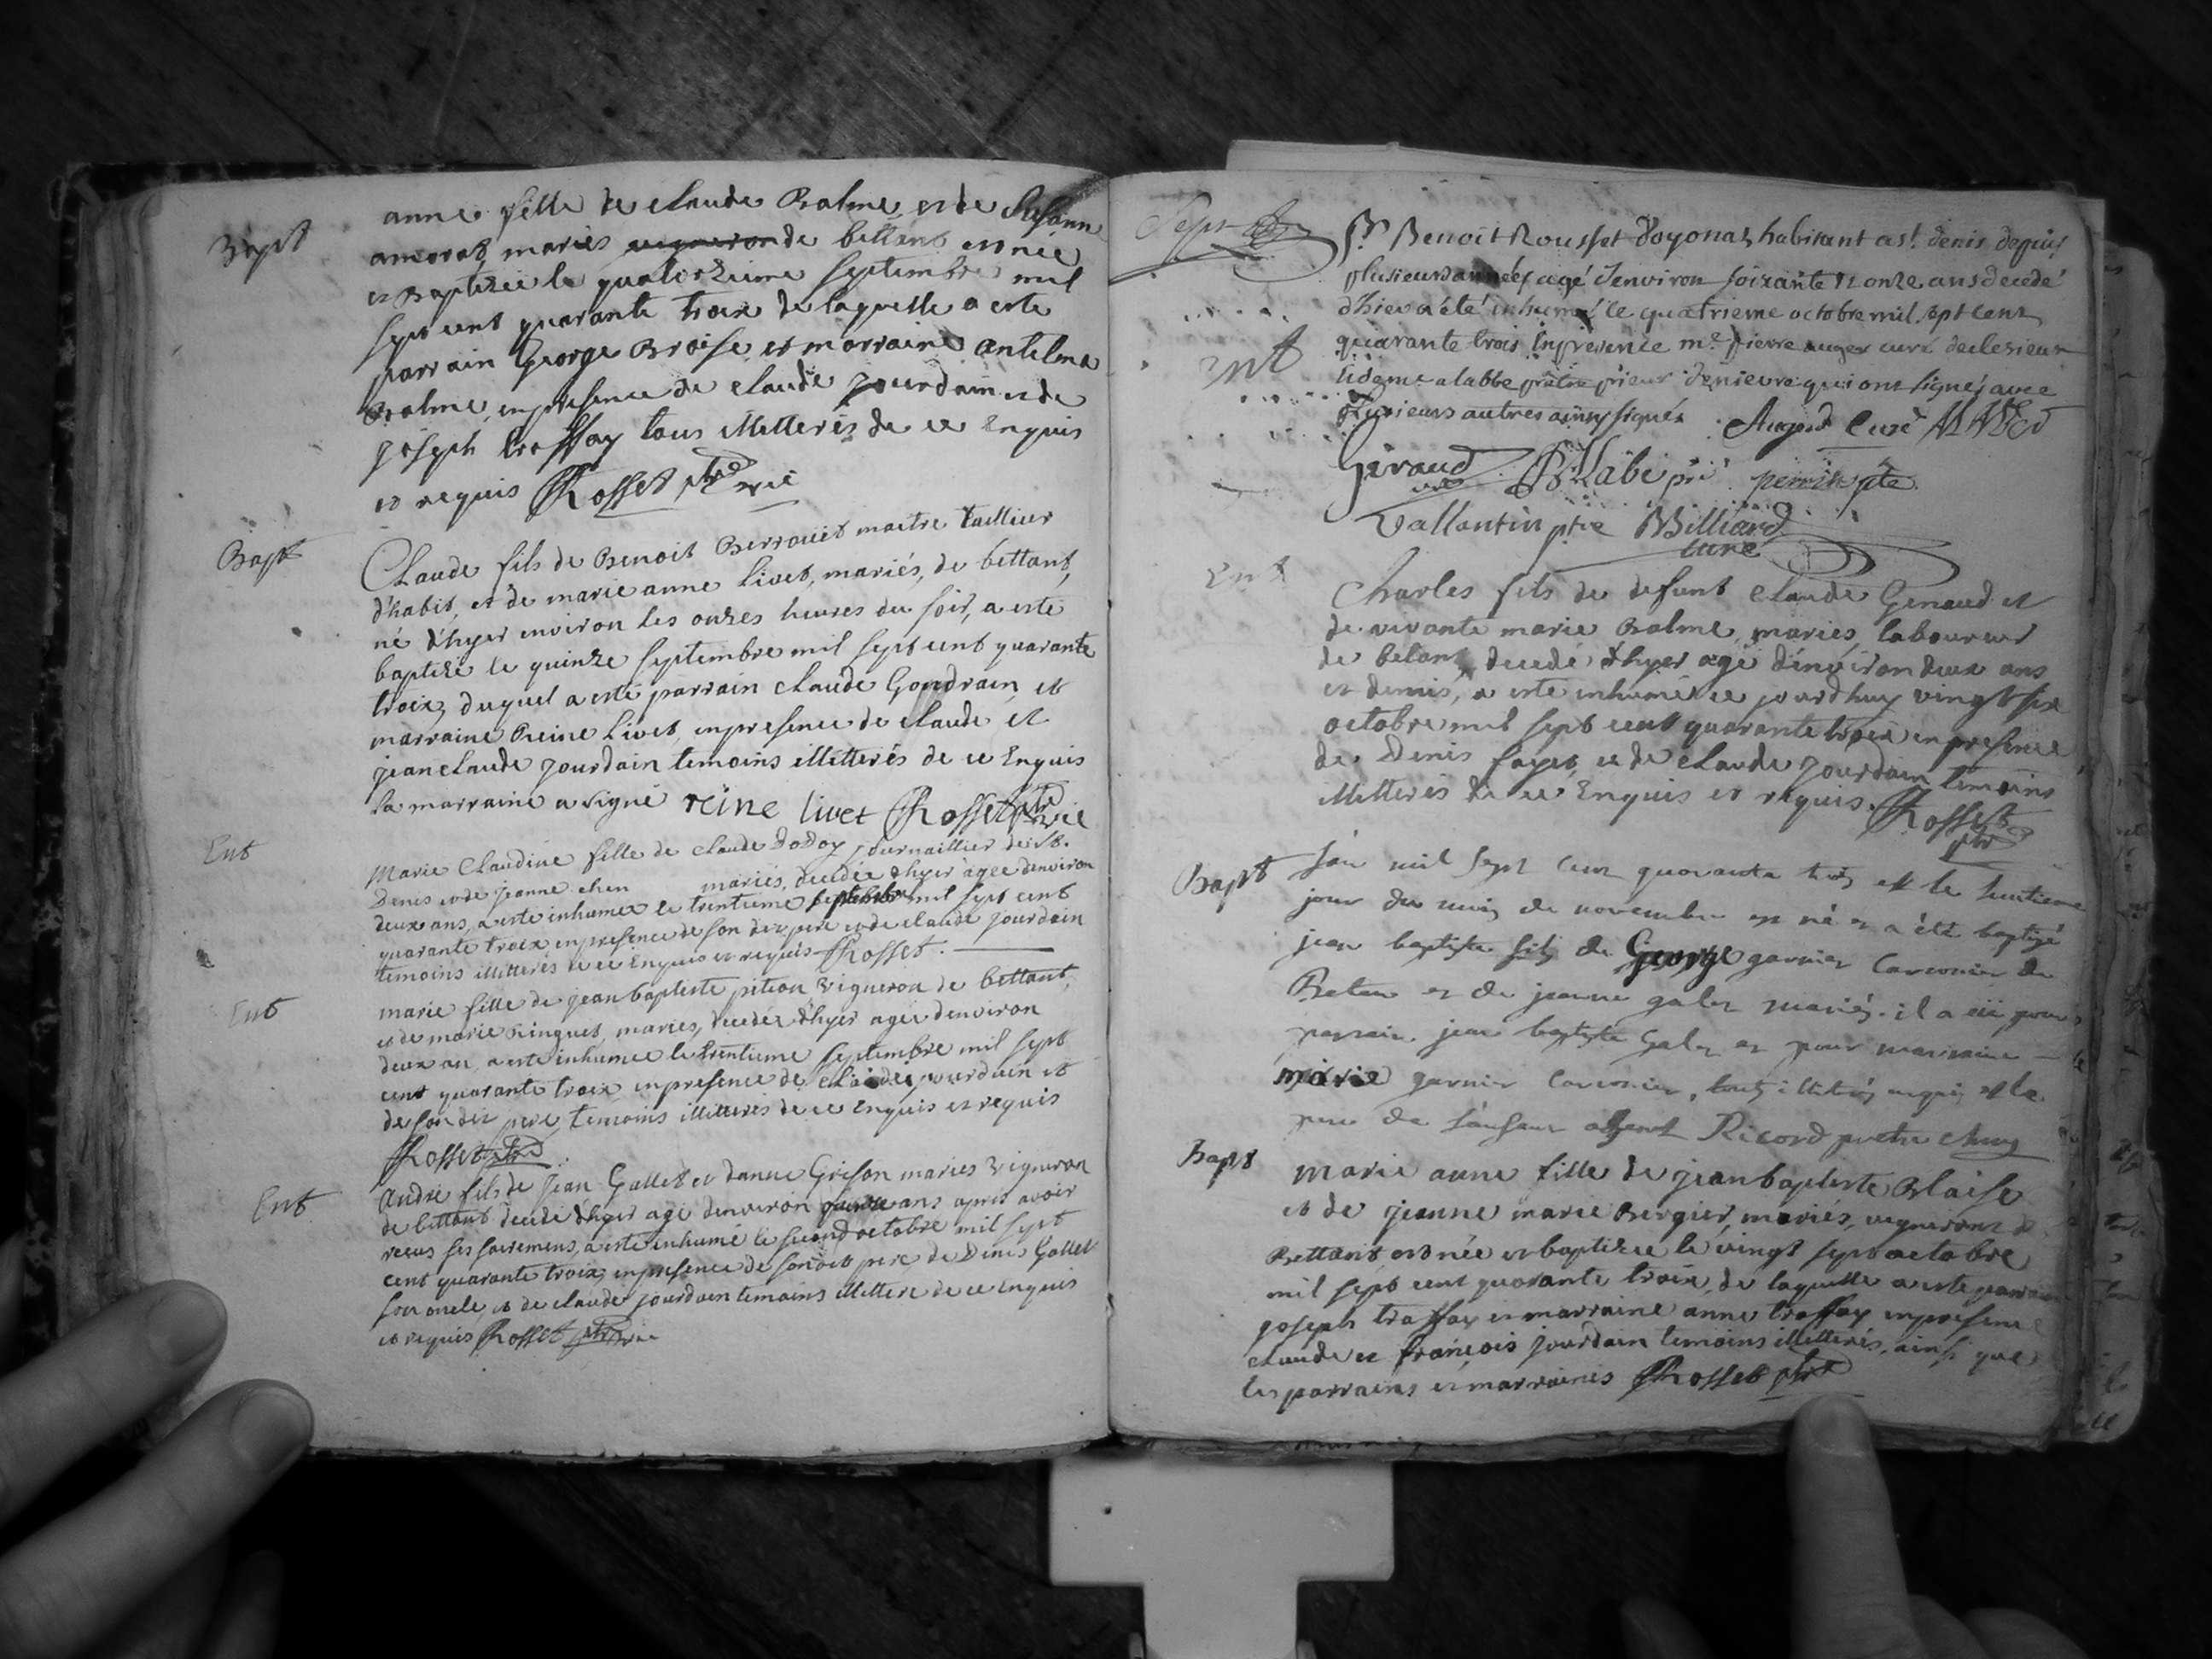 Bapt
anne fille de claude Balme et de Susanne
amorat, mariés vigneron de bettant est née
et Baptizée le quatorzieme septembre mil
sept cent quarante troix de laquelle a esté
parrain George Broise et marraine antelma
Balme, en presence de claude jourdain et de
joseph troffay tous illitterés de ce Enquis
et requis Rosset ptre vic
Bapt
Claude fils de Benoit Berrouët maitre taillieur
d'habit, et de marie anne livet, mariés, de bettant,
né d'hyer environ les onzes heures du soir, a esté
baptizé le quinze septembre mil sept cent quarante
troix, duquel a esté parrain claude Goudrain et
marraine Reine livet, en presence de claude et
jean claude jourdain temoins illitterés de ce Enquis
la marraine a signé reine livet Rosset ptre vic
Ent
Marie Claudine fille de claude Dodoy journaillier de St.
Denis et de jeanne chen mariés, decedée d'hyer agée denviron
deux ans, a esté inhumée le trentieme septembre mil sept cent
quarante troix en presence de son dit pere et de claude jourdain
temoins illitterés de ce Enquis et requis Rosset.
Ent
marie fille de jean baptiste piteon vigneron de bettant,
et de marie Ringuet, mariés, decedée d'hyer agée denviron
deux an, a esté inhumée le trentieme septembre mil sept
cent quarante troix, en presence de claude jourdain et
de son dit pere, temoins illitterés de ce Enquis et requis
Rosset ptre
Ent
Andre fils de Jean Gallet et danne Grison mariés vigneron
de bettant decedé d'hyer agé denviron quinze ans apres avoir
recus ses sacremens, a esté inhumé le second octobre mil sept
cent quarante troix, en presence de son dit pere de Denis Gallet
son oncle, et de claude jourdain temoins illittere de ce Enquis
et requis Rosset ptre vic
Sept
Sr. Benoit Rousset d'oyonas habitant a st. denis depuis
plusieurs années agé d'environ soixante et onze ans decedé
d'hier a été inhumé le quatrieme octobre mil sept cent
Ent
quarante trois in presence mre pierre auger curé de
labbe prêtre prieur de nievre qui ont signés avec
plusieurs autres ainsy signés. Augerd Curé
Giraud B. Labé pri perrin ptre
Vallantin ptre Billiard
curé
Ent
Charles fils de defunt claude Genaud et
de vivante marie Balme, mariés, laboureur
de betant, decedé d'hyer agé d'environ deux ans
et demis, a esté inhumé ce jourd'huy vingt six
octobre mil sept cent quarante troix en presence
de Denis fayet, et de claude jourdain temoins
illitterés de ce Enquis et requis. Rosset
ptre
Bapt
L'an mil sept cent quarante trois et le huitieme
jour du mois de novembre est né et a été baptizé
jean baptiste fils de George garnier
Betan et de jeanne galet mariés. il a eu pour
parrain jean baptiste Galet et pour marraine
marie garnier, tous illitterés enquis et le
pere de l'enfant absent Ricord pretre
Bapt
Marie anne fille de jean baptiste Blaise
et de jeanne marie Bergier, mariés, vignerons d
Bettant, est née et baptizée le vingt sept octobre
mil sept cent quarante troix, de laquelle a esté parrain
joseph troffay et marraine anne troffay en presence
claude et françois jourdain temoins illitterés, ainsi que
les parrains et marraines Rosset ptre